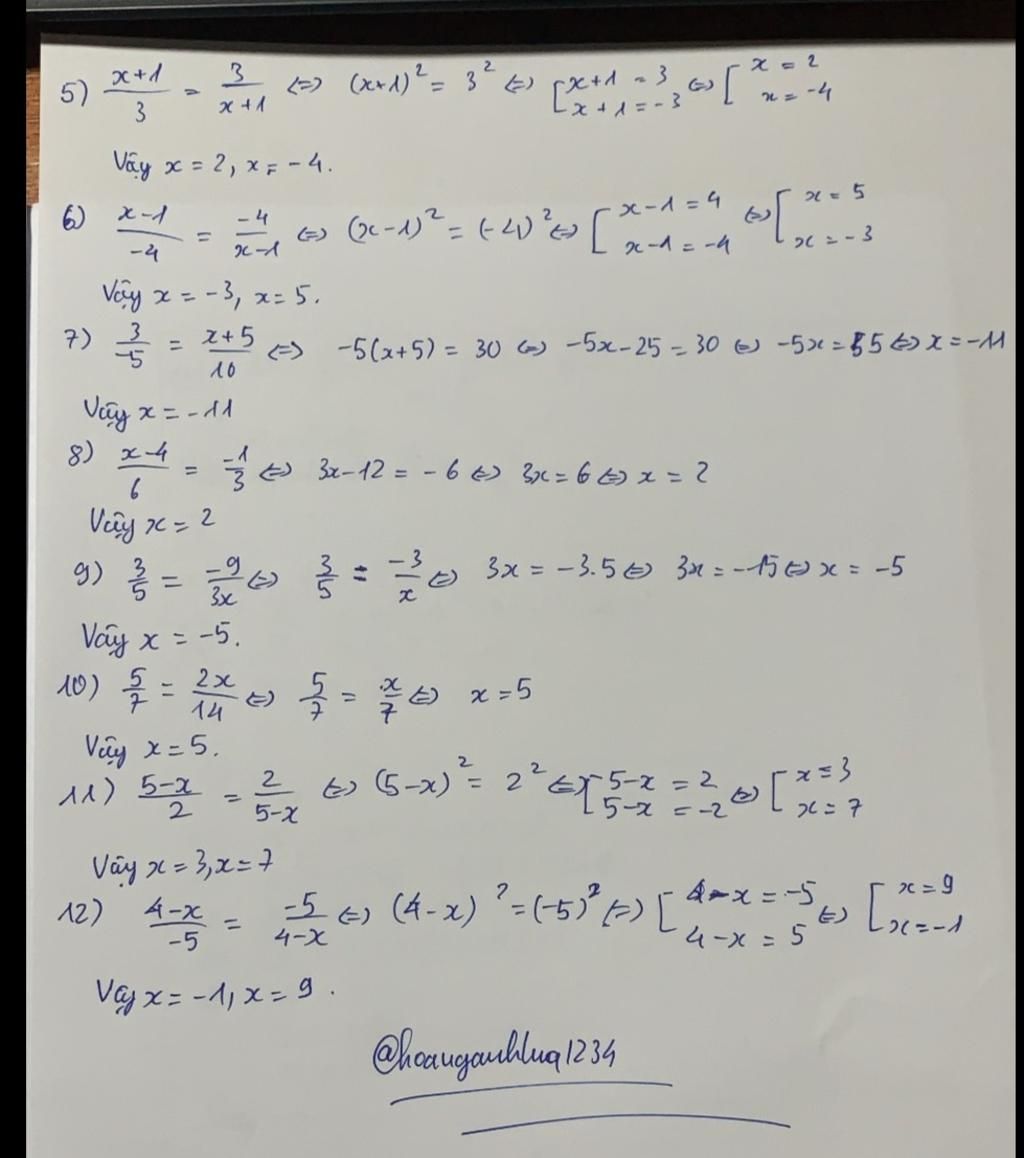 5) (x+1)/3 = 3/(x+1) ⇔ (x+1)² = 3² ⇔ [x+1 = 3 x+1 = -3 ⇔ [x = 2 x = -4
Vậy x = 2, x = -4.
6) (x-1)/-4 = -4/(x-1) ⇔ (x-1)² = (-4)² ⇔ [x-1 = 4 x-1 = -4 ⇔ [x = 5 x = -3
Vậy x = -3, x = 5.
7) 3/-5 = (x+5)/10 ⇔ -5(x+5) = 30 ⇔ -5x-25 = 30 ⇔ -5x = 55 ⇔ x = -11
Vậy x = -11
8) (x-4)/6 = -1/3 ⇔ 3x-12 = -6 ⇔ 3x = 6 ⇔ x = 2
Vậy x = 2
9) 3/5 = -9/3x ⇔ 3/5 = -3/x ⇔ 3x = -3.5 ⇔ 3x = -15 ⇔ x = -5
Vậy x = -5.
10) 5/7 = 2x/14 ⇔ 5/7 = x/7 ⇔ x = 5
Vậy x = 5.
11) (5-x)/2 = 2/(5-x) ⇔ (5-x)² = 2² ⇔ [5-x = 2 5-x = -2 ⇔ [x = 3 x = 7
Vậy x = 3, x = 7
12) (4-x)/-5 = -5/(4-x) ⇔ (4-x)² = (-5)² ⇔ [4-x = -5 4-x = 5 ⇔ [x = 9 x = -1
Vậy x = -1, x = 9.